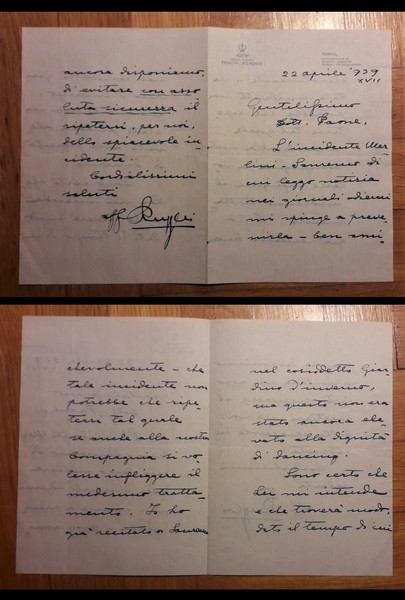 22 aprile '939
XVII
Gentilissimo
Dott. Paone,
L'incidente Mer-
lini - Sanremo di
cui leggo notizia
nei giornali odierni
mi spinge a preve-
nirla - ben ami-
chevolmente - che
tale incidente non
potrebbe che ripe-
tersi tal quale
se anche alla nostra
Compagnia si vo-
lesse infliggere il
medesimo tratta-
mento. Io ho
già recitato a Sanremo
nel cosiddetto Giar-
dino d'inverno,
ma questo non era
stato ancora ele-
vato alla dignità
di dancing.
Sono certo che
Lei mi intende
e che troverà modo,
dato il tempo di cui
ancora disponiamo,
di evitare con asso
luta sicurezza il
ripetersi, per noi,
dello spiacevole in-
cidente.
Cordialissimi
saluti
aff